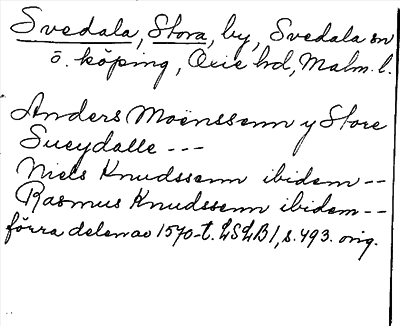 Svedala, Stora, by, Svedala sn
o. köping, Oxie hd, Malm. l.
Anders Moenssenn y Store
Sueydalle ---
Niels Knudssenn ibidem --
Rasmus Knudssenn ibidem --
förra delen av 1570-t. LSLB 1, s. 493. orig.